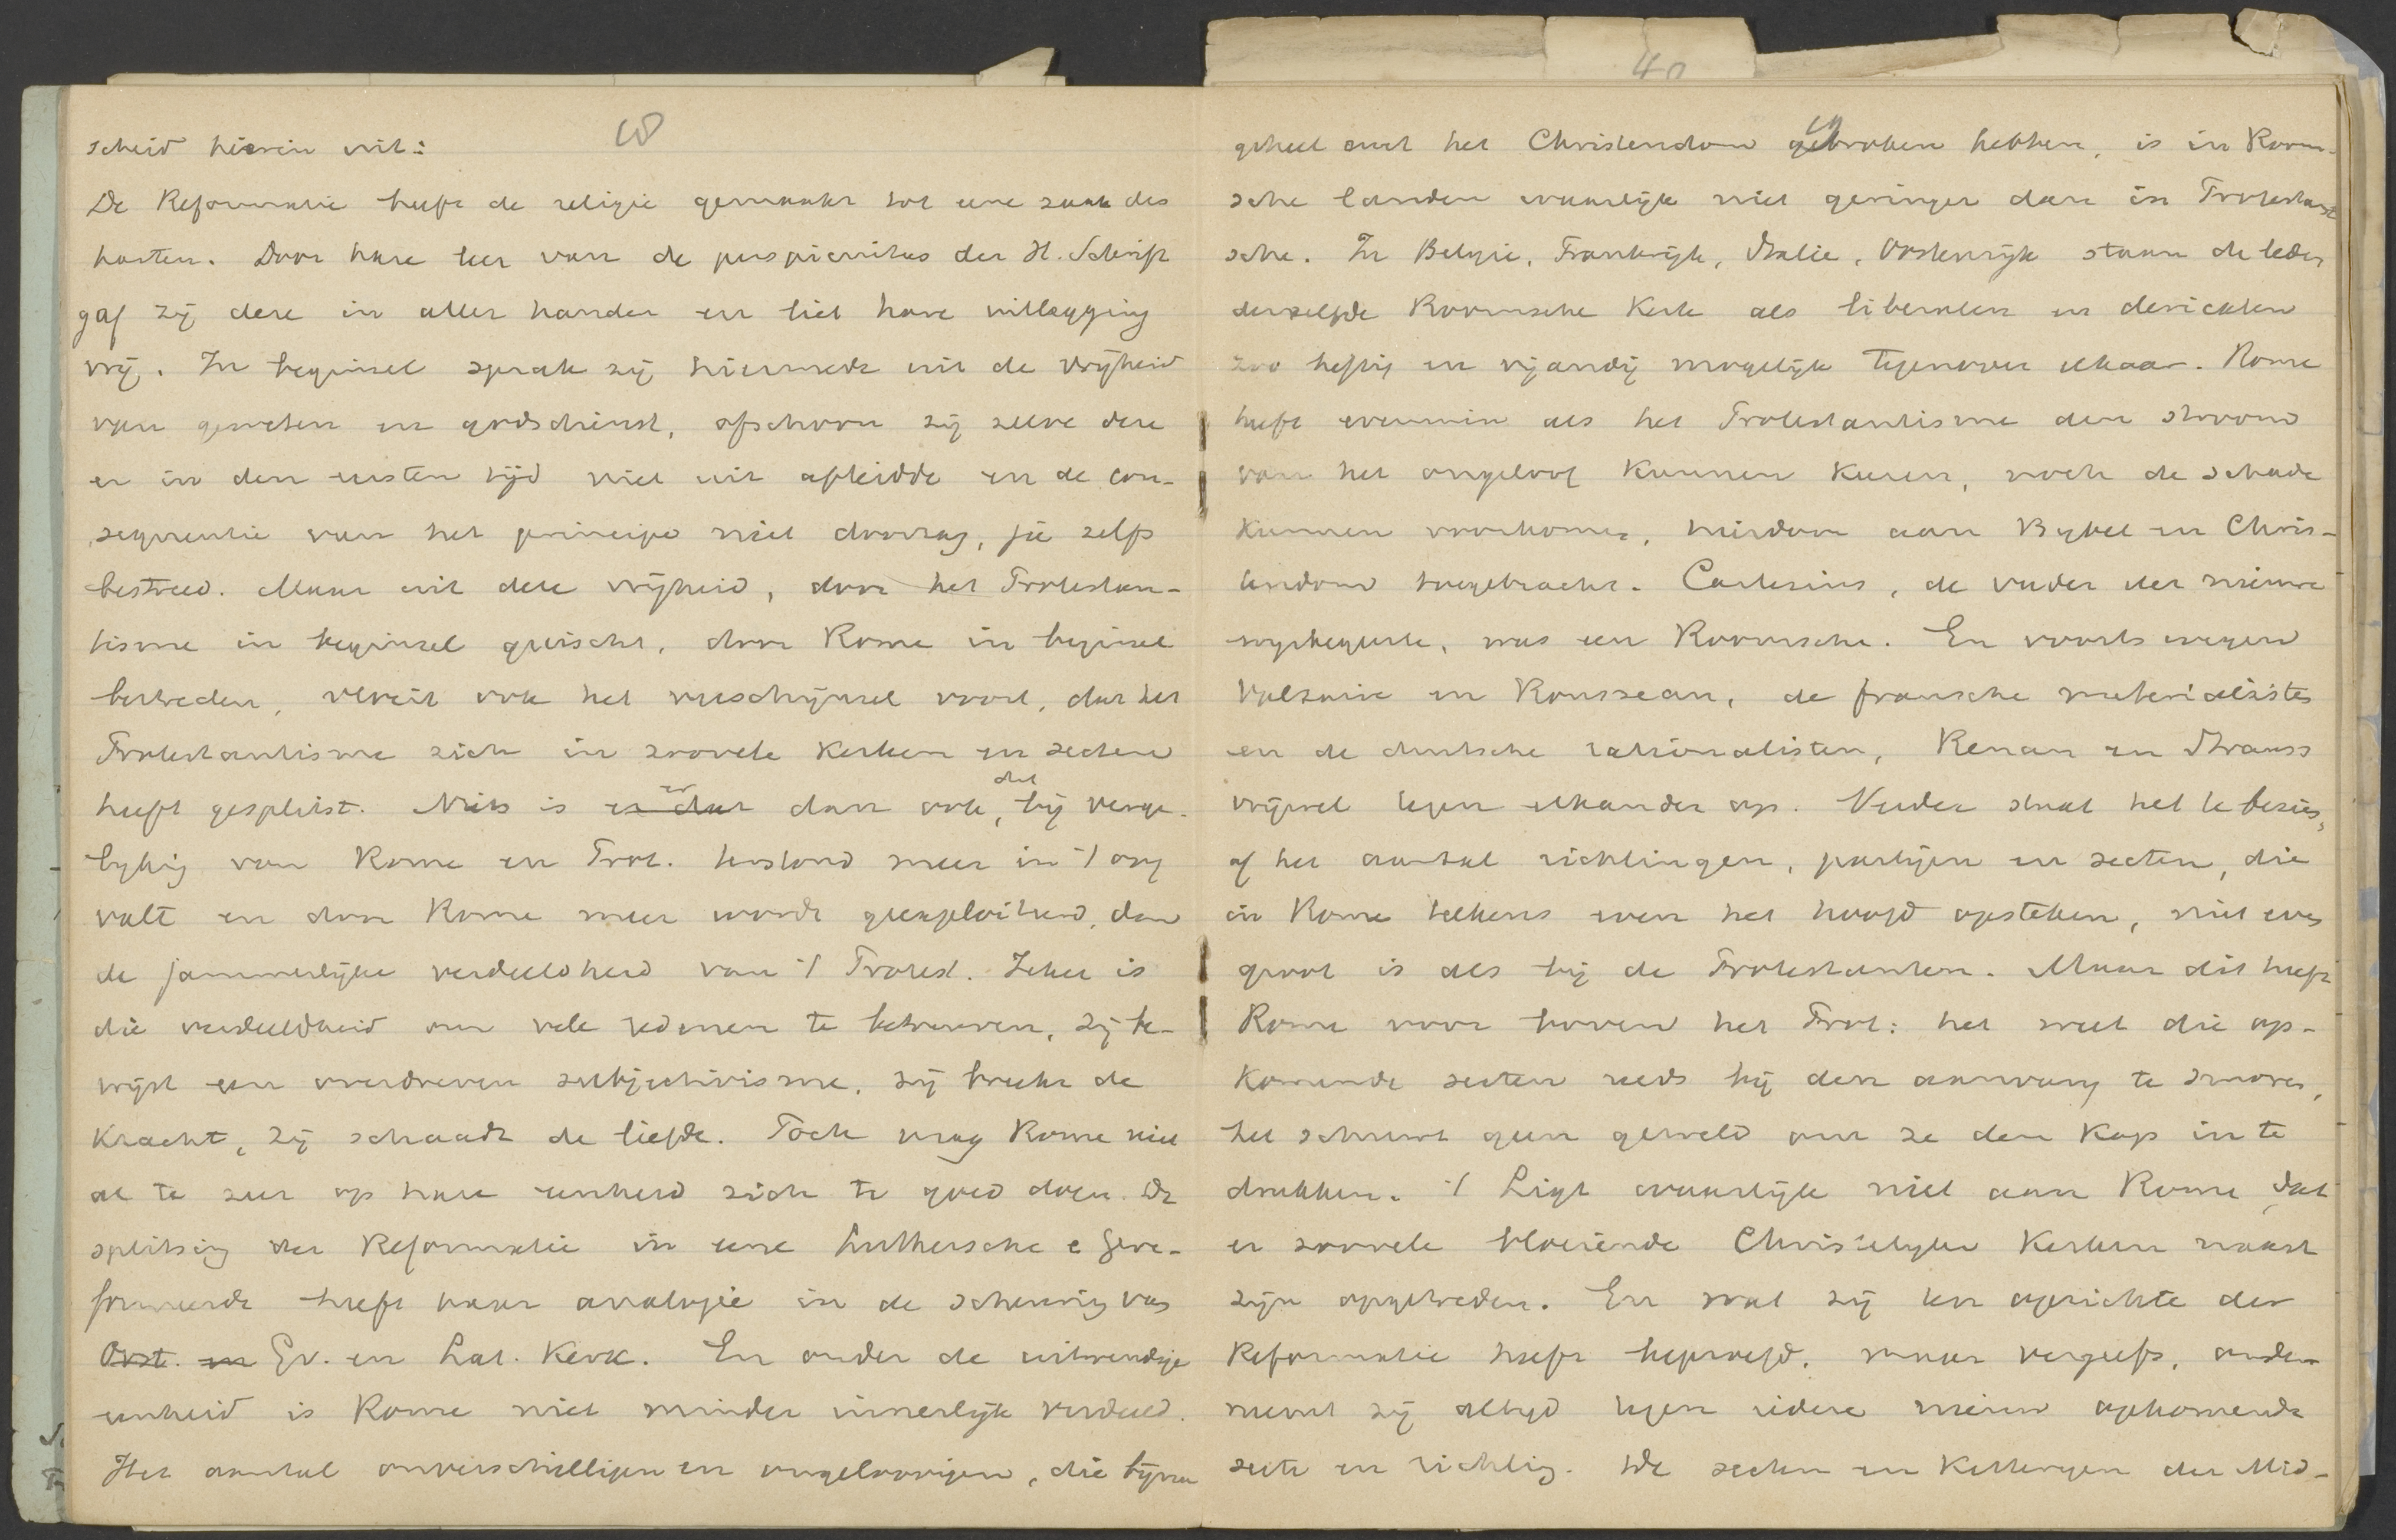 scheid hierin uit:
De Reformatie heeft de religie gemaakt tot eene zaak des
harten. Door hare leer van de perspicuitas der H. Schrift
gaf zij deze in aller handen en liet hare uitlegging
vrij. In beginsel sprak zij hiermede uit de vrijheid
van geweten en godsdienst, ofschoon zij zelve deze
er in den eersten tijd niet uit afleidde en de con-
sequentie van het principe niet doorzag, ja zelfs
bestreed. Maar uit deze vrijheid, door het Protestan-
tisme in beginsel geeischt, door Rome in beginsel
bestreden, vloeit ook het verschijnsel voort, dat het
Protestantisme zich in zoovele kerken en secten
heeft gesplitst. Niets is er dan ook, dat bij verge-
lyking van Rome en Prot. terstond meer in 't oog
valt en door Rome meer wordt geexploiteerd, dan
de jammerlijke verdeeldheid van 't Protest. Zeker is
die verdeeldheid om vele redenen te betreuren, zij be-
wijst een overdreven subjectivisme, zij breekt de
kracht, zij schaadt de liefde. Toch mag Rome niet
al te zeer op hare eenheid zich te goed doen. De
splitsing der Reformatie in eene Luthersche e Gere-
formeerde heeft haar analogie in de scheuring van
Oost. en Gr. en Lat. Kerk. En onder de uitwendige
eenheid is Rome niet minder innerlijk verdeeld.
Het aantal onverschilligen en ongeloovigen, die bijna
40
geheel met het Christendom gebroken hebben, is in Room-
sche landen waarlijk niet geringer dan in Protestant
sche. In Belgie, Frankrijk, Italie, Oostenrijk staan de leden
derzelfde Roomsche Kerk als liberalen en clericalen
zoo heftig en vijandig mogelijk tegenover elkaar. Rome
heeft evenmin als het Protestantisme den stroom
van het ongeloof kunnen keeren, noch de schade
kunnen voorkomen, hierdoor aan Bybel en Chris-
tendom toegebracht. Cartesius, de vader der nieuwe
wysbegeerte, was een Roomsche. En voorts wegen
Voltaire en Rousseau, de fransche materialisten
en de duitsche rationalisten, Renan en Strauss
vrijwel tegen elkander op. Verder staat het te bezien,
of het aantal richtingen, partijen en secten, die
in Rome telkens weer het hoofd opsteken, niet even
groot is als bij de Protestanten. Maar dit heeft
Rome voor boven het Prot: het weet die op-
komende secten reeds bij den aanvang te smoren,
het schuwt geen geweld om ze den kop in te
drukken. 't Ligt waarlijk niet aan Rome, dat
er zoovele bloeiende Christelyke Kerken naast
zijn opgetreden. En wat zij ten opzichte der
Reformatie heeft beproefd, maar vergeefs, onder-
neemt zij altyd tegen iedere nieuw opkomende
secte en richting. De secten en ketteryen der Mid-